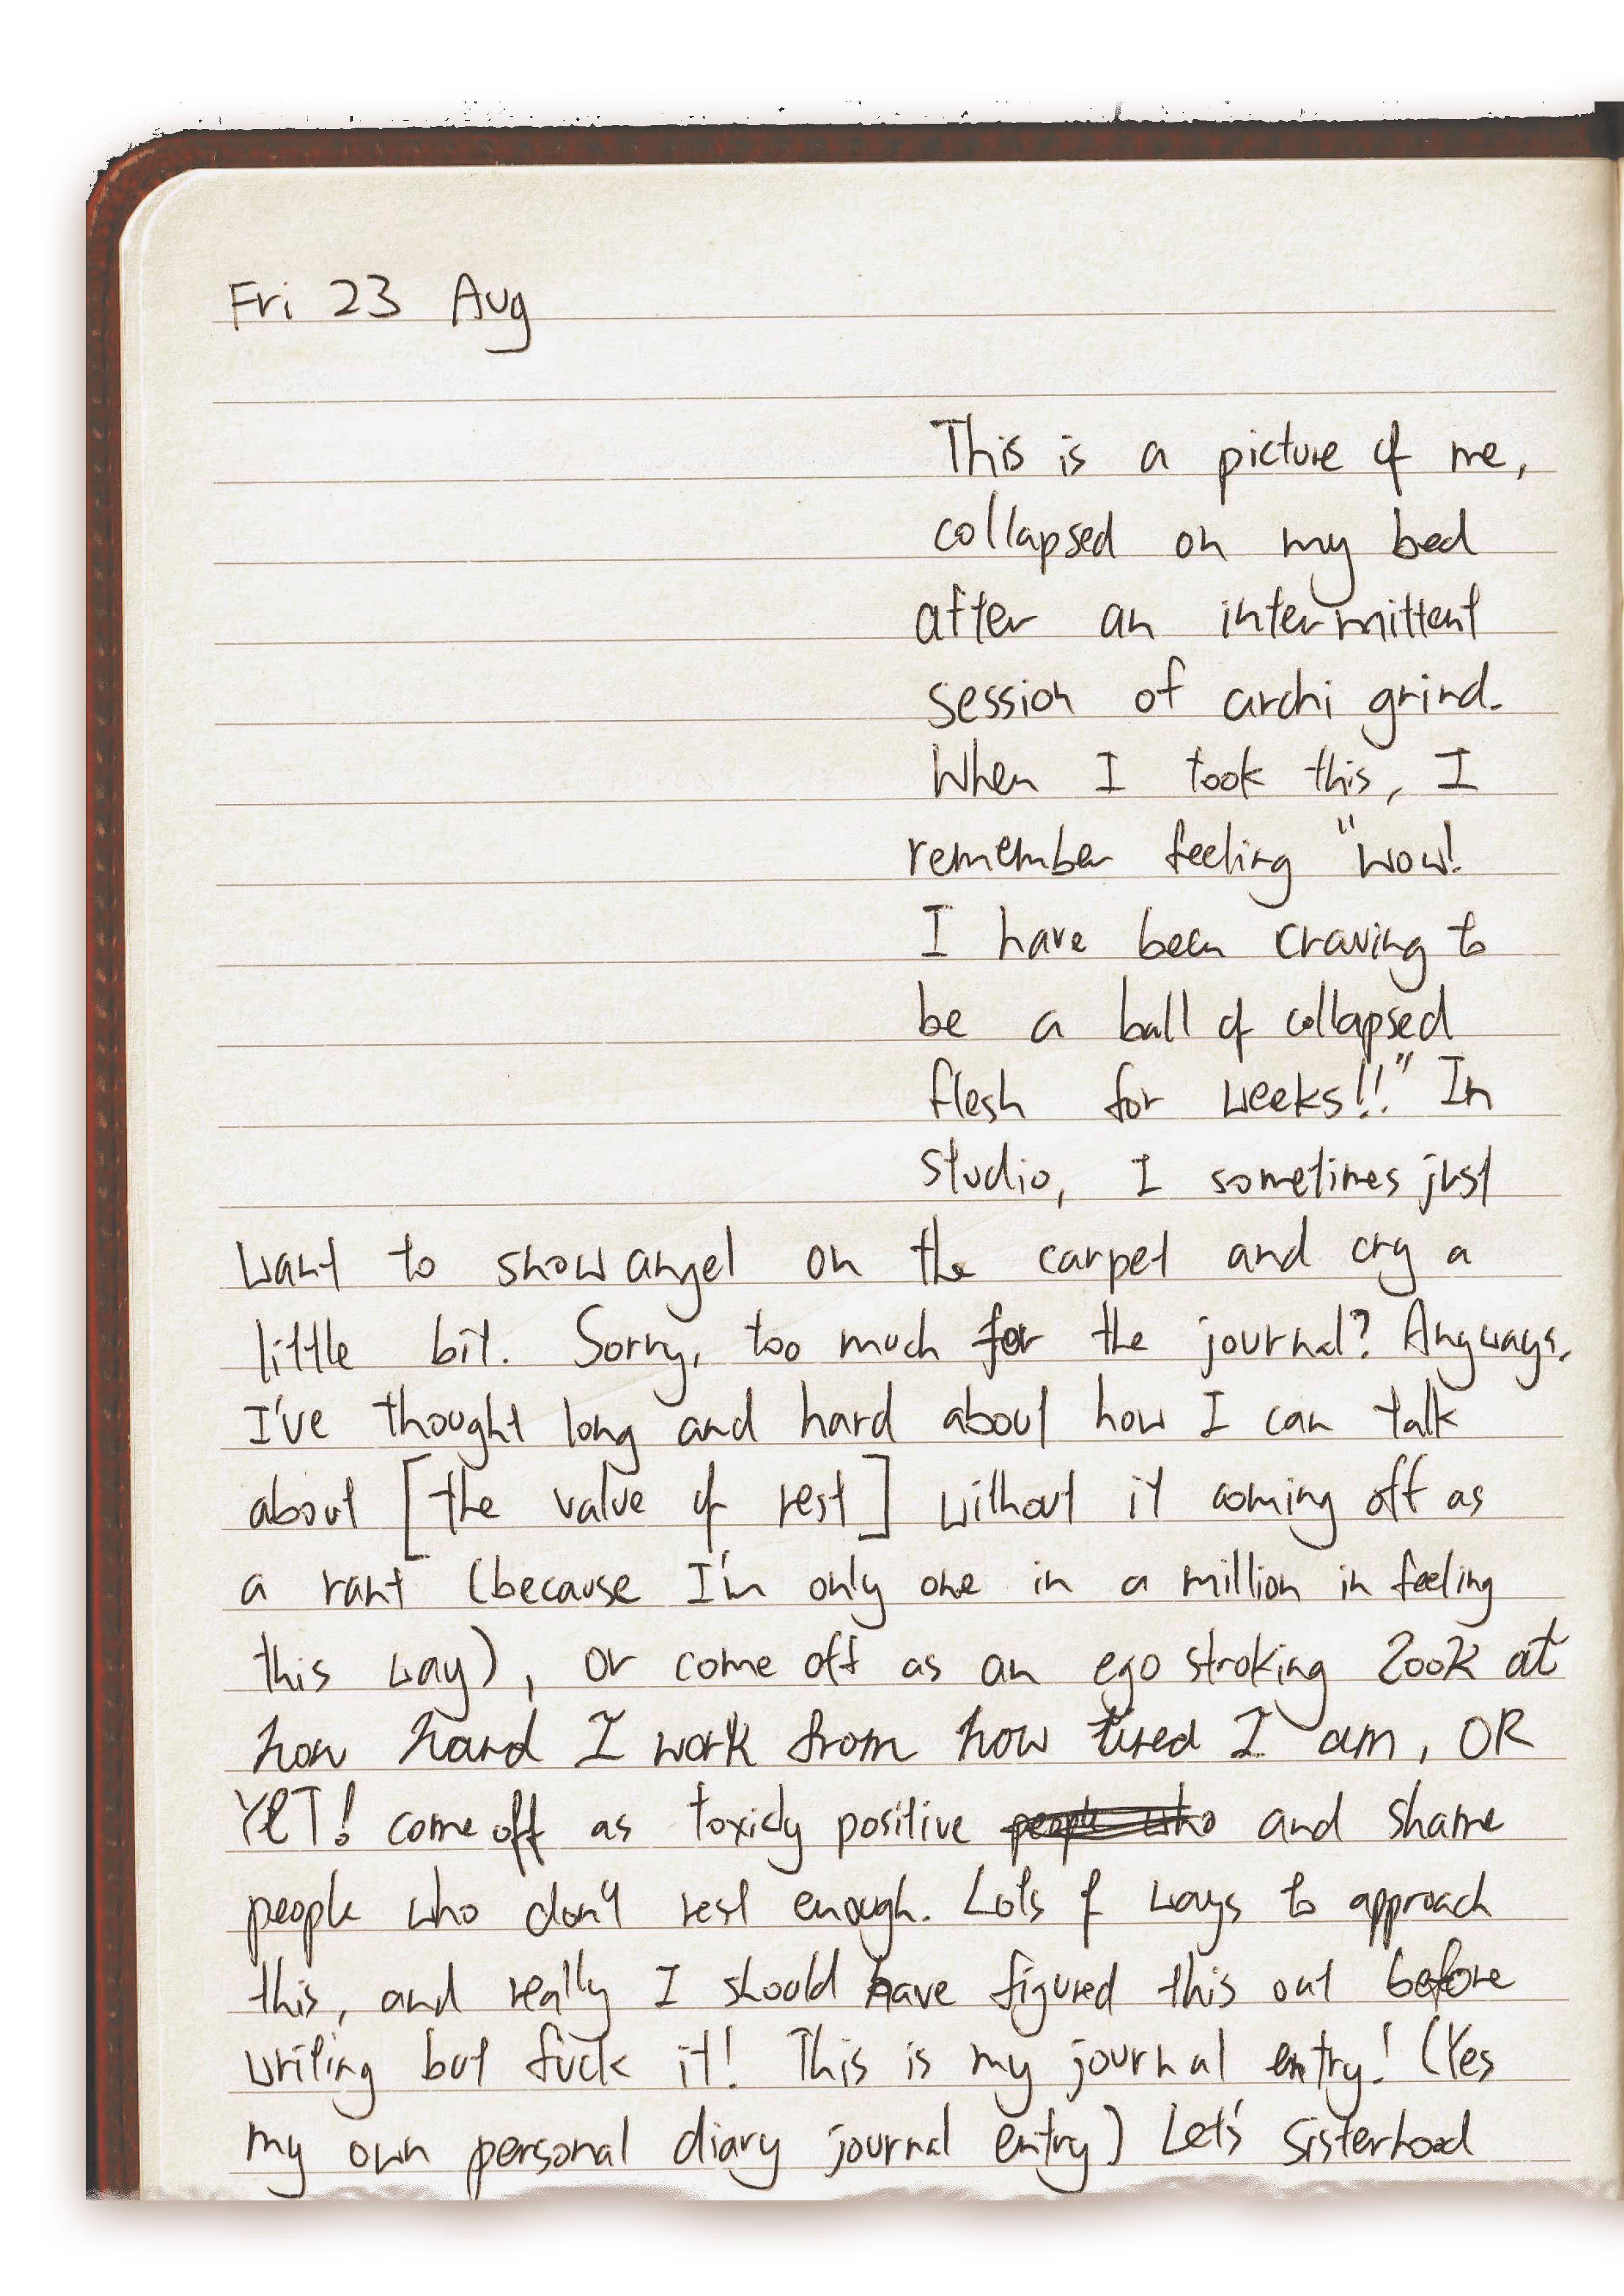 Fri 23 Aug
This is a picture of me,
collapsed on my bed
after an intermittent
session of archi grind.
When I took this, I
remember feeling "wow!
I have been craving to
be a ball of collapsed
flesh for weeks!!" In
studio, I sometimes just
want to snow angel on the carpet and cry a
little bit. Sorry, too much for the journal? Anyways,
I've thought long and hard about how I can talk
about [the value of rest] without it coming off as
a rant (because I'm only one in a million in feeling
this way), or come off as an ego stroking look at
how hard I work from how tired I am, OR
YET! come off as toxicly positive people who and shame
people who don't rest enough. Lots of ways to approach
this, and really I should have figured this out before
writing but fuck it! This is my journal entry! (Yes
my own personal diary journal entry) Let's sisterhood